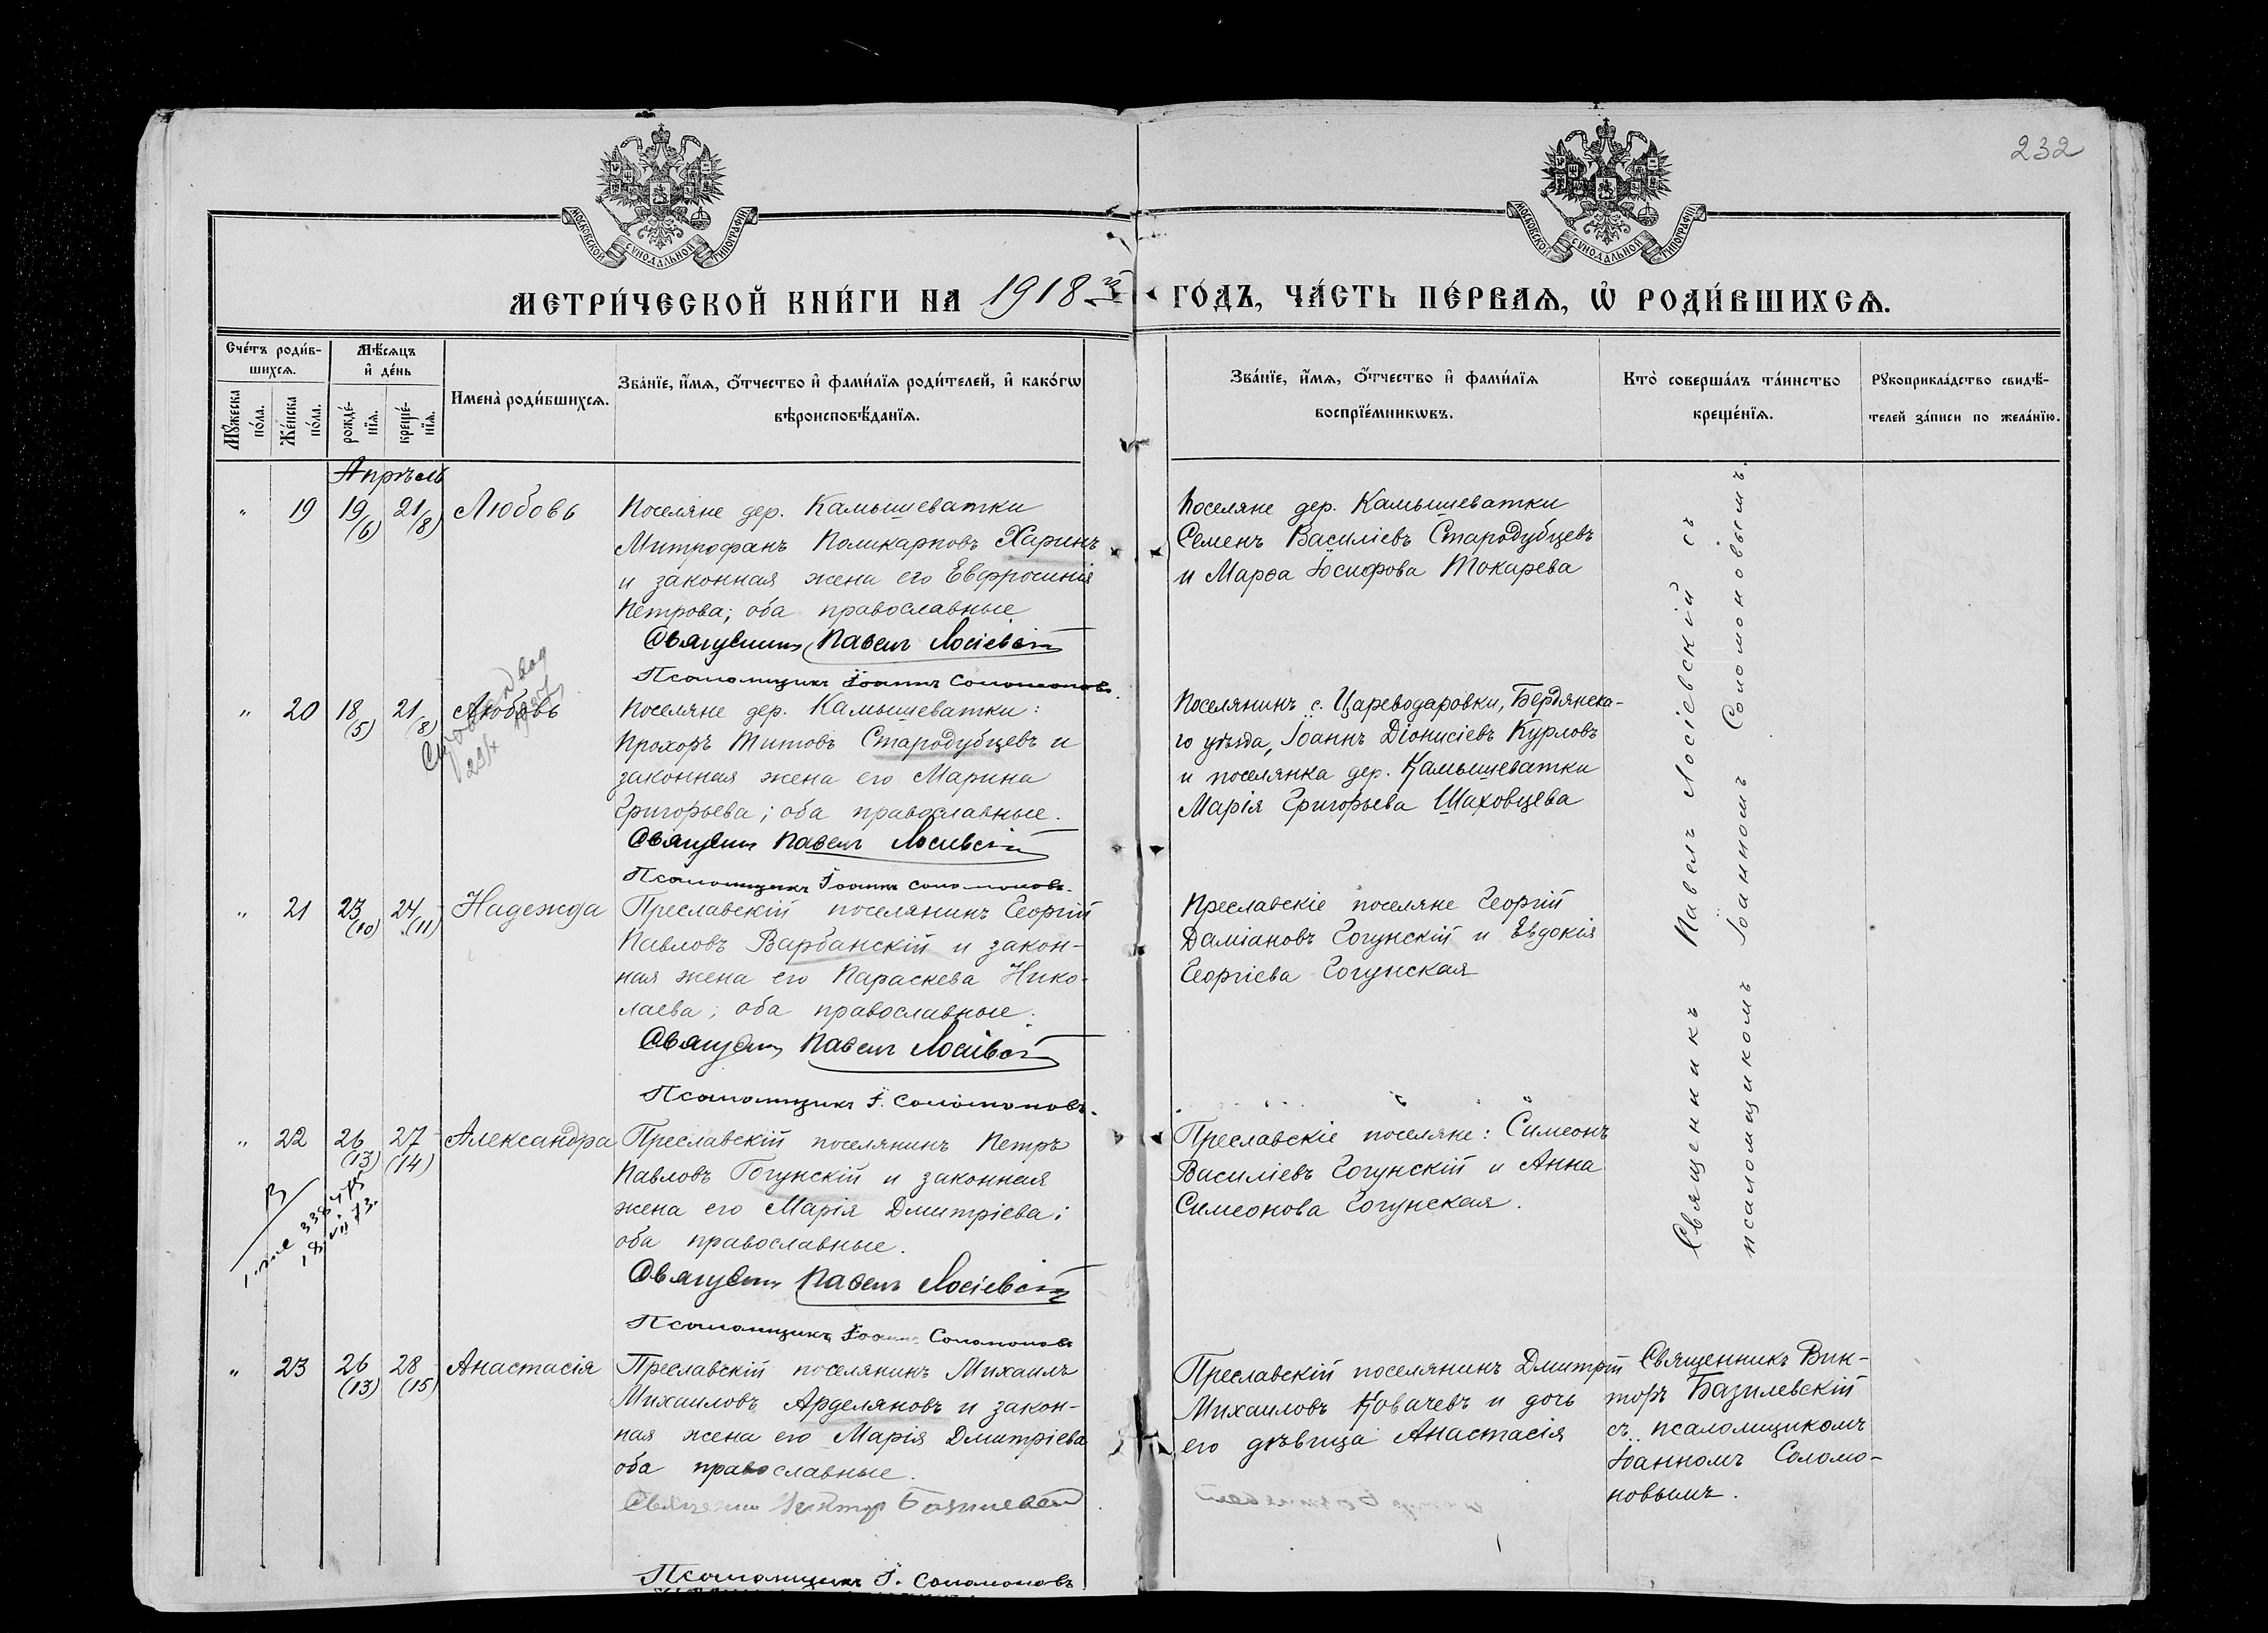 232
МОСКОВСКОЙ СУНОДАЛЬНОЙ ТИПОГРАФІИ
МОСКОВСКОЙ СУНОДАЛЬНОЙ ТИПОГРАФІИ
МЕТРИ́ЧЕСКОЙ КНИ́ГИ НА 1918 й ГО́ДЪ, ЧА́СТЬ ПЕ́РВАѦ, Ѡ҆ РОДИ́ВШИХСѦ.
Сче́тъ роди́в-
шихсѧ.
Мꙋ́жеска по́ла.
Же́нска по́ла.
Мѣ́сѧцъ
и҆ де́нь
рожде́-
нїѧ.
креще́-
нїѧ.
Имена̀ роди́вшихсѧ.
Зва́нїе, и҆́мѧ, ѻ҆́тчество и҆ фами́лїѧ роди́телей, и҆ како́гѡ
вѣроисповѣ́данїѧ.
Зва́нїе, и҆́мѧ, ѻ҆́тчество и҆ фами́лїѧ
воспрїе́мникѡвъ.
Кто̀ соверша́лъ та́инство
креще́нїѧ.
Рꙋкоприкла́дство свидѣ́-
телей за́писи по жела́нїю.
Апрѣль
" 19 19 (6) 21 (8) Любовь
Поселяне дер. Камышеватки
Митрофанъ Поликарповъ Харинъ
и законная жена его Евфросинія
Петрова; оба православные
Священникъ Павелъ Лосіевскій
Псаломщикъ Іоаннъ Соломоновъ.
Поселяне дер. Камышеватки
Семенъ Василіевъ Стародубцевъ
и Марѳа Іосифова Токарева
Священникъ Павелъ Лосіевскій съ
псаломщикомъ Іоанномъ Соломоновымъ.
" 20 18 (5) 21 (8) Любовь
Поселяне дер. Камышеватки:
Прохоръ Титовъ Стародубцевъ и
законная жена его Марина
Григорьева; оба православные.
Священникъ Павелъ Лосіевскій
Псаломщикъ Іоаннъ Соломоновъ.
Поселянинъ с. Цареводаровки, Бердянска-
го уѣзда, Іоаннъ Діонисіевъ Курловъ
и поселянка дер. Камышеватки
Марія Григорьева Шаховцева
" 21 23 (10) 24 (11) Надежда
Преславскій поселянинъ Георгій
Павловъ Варбанскій и закон-
ная жена его Параскева Нико-
лаева; оба православные.
Священникъ Павелъ Лосіевскій
Псаломщикъ І. Соломоновъ.
Преславскіе поселяне Георгій
Даміановъ Гогунскій и Евдокія
Георгіева Гогунская
" 22 26 (13) 27 (14) Александра
Преславскій поселянинъ Петръ
Павловъ Гогунскій и законная
жена его Марія Дмитріева;
оба православные.
Священникъ Павелъ Лосіевскій
Псаломщикъ Іоаннъ Соломоновъ
Преславскіе поселяне: Симеонъ
Василіевъ Гогунскій и Анна
Симеонова Гогунская.
" 23 26 (13) 28 (15) Анастасія
Преславскій поселянинъ Михаилъ
Михаиловъ Арделяновъ и закон-
ная жена его Марія Дмитріева
оба православные.
Священникъ Викторъ Базилевскій
Псаломщикъ І. Соломоновъ
Преславскій поселянинъ Дмитрій
Михаиловъ Ковачевъ и дочь
его дѣвица Анастасія
Священникъ Вик-
торъ Базилевскій
съ псаломщикомъ
Іоанномъ Соломо-
новымъ.